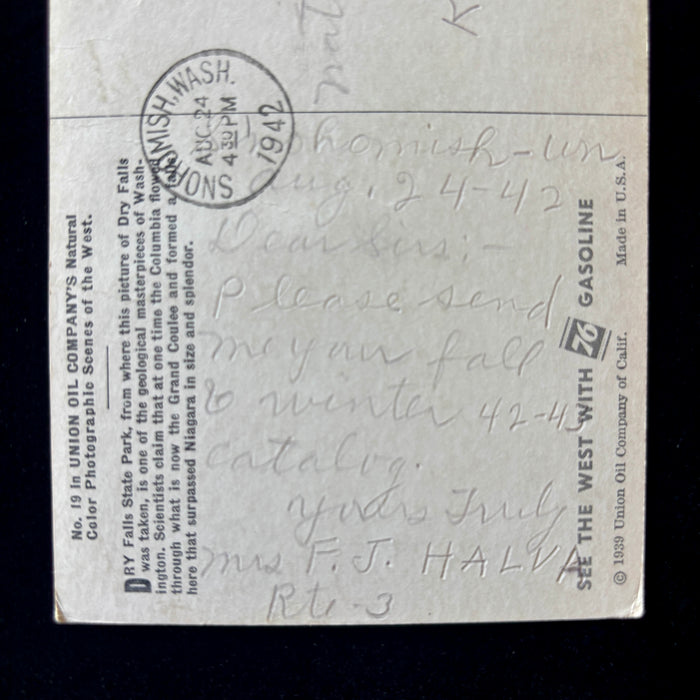 No. 19 in UNION OIL COMPANY'S Natural
Color Photographic Scenes of the West.
DRY Falls State Park, from where this picture of Dry Falls
was taken, is one of the geological masterpieces of Wash-
ington. Scientists claim that at one time the Columbia flowed
through what is now the Grand Coulee and formed a falls
here that surpassed Niagara in size and splendor.
SNOHOMISH, WASH.
AUG 24
4 30 PM
1942
Snohomish - Wn
Aug. 24-42
Dear Sirs; -
Please send
me your fall
& winter 42-43
catalog.
Yours Truly
Mrs F. J. HALVA
Rte-3
SEE THE WEST WITH 76 GASOLINE
© 1939 Union Oil Company of Calif. Made in U.S.A.
K